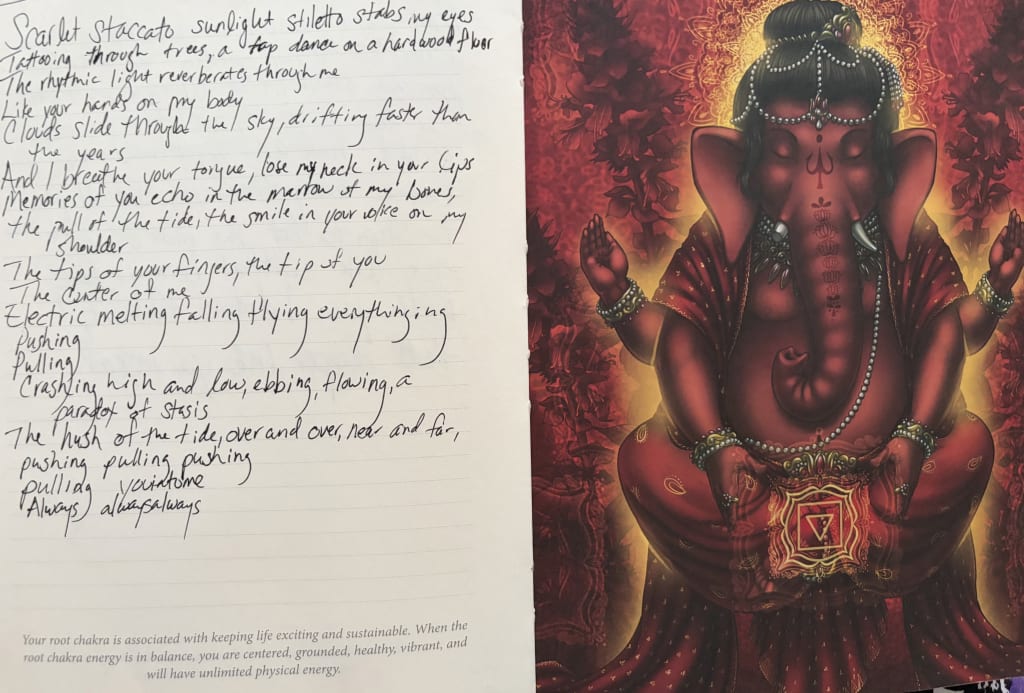 Scarlet Staccato sunlight stiletto stabs my eyes
Tattooing through trees, a tap dance on a hardwood floor
The rhythmic light reverberates through me
Like your hands on my body
Clouds slide through the sky, drifting faster than
the years
And I breathe your tongue, lose my neck in your lips
Memories of you echo in the marrow of my bones,
the pull of the tide, the smile in your voice on my
shoulder
The tips of your fingers, the tip of you
The center of me
Electric melting falling flying everythinging
Pushing
Pulling
Crashing high and low, ebbing, flowing, a
paradox of stasis
The hush of the tide, over and over, near and far,
pushing pulling pushing
pulling youintome
Always alwaysalways
Your root chakra is associated with keeping life exciting and sustainable. When the
root chakra energy is in balance, you are centered, grounded, healthy, vibrant, and
will have unlimited physical energy.